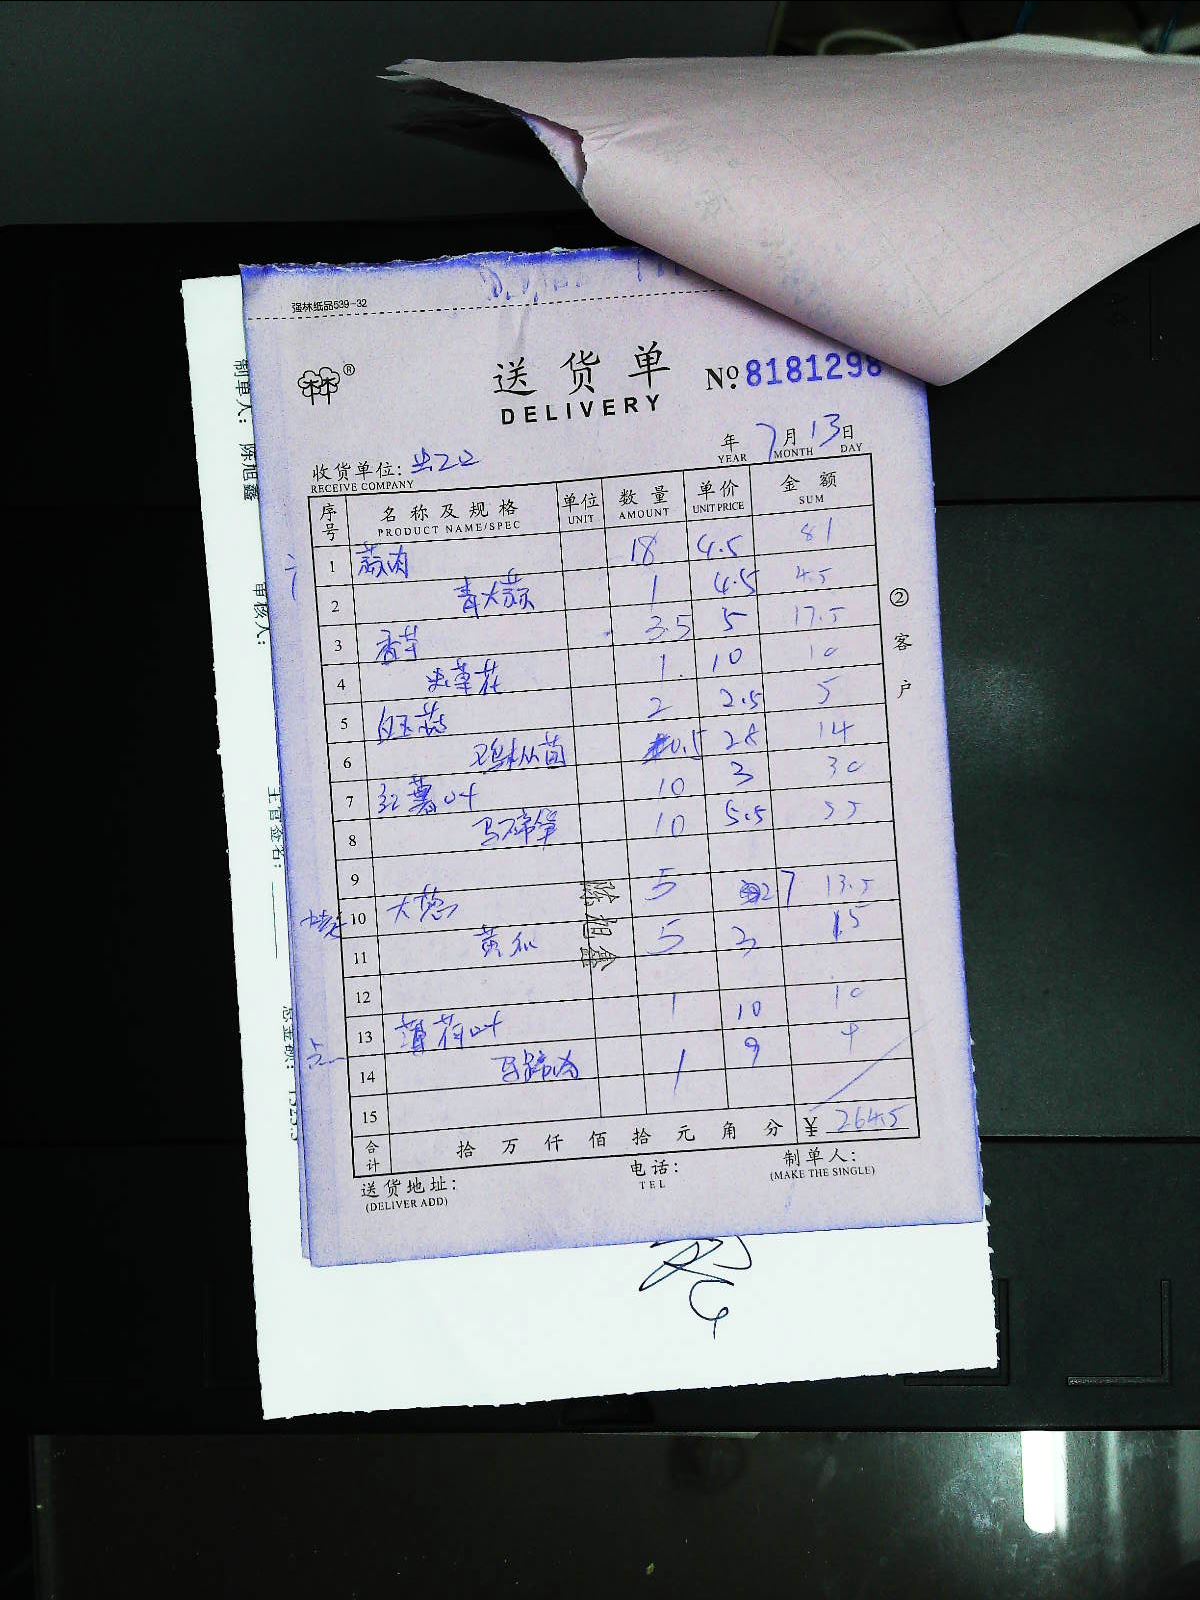 强林纸品539-32
林林®
送货单
DELIVERY
No. 8181298
年 7月13日
YEAR MONTH DAY
收货单位:
RECEIVE COMPANY
序号 名称及规格 单位 数量 单价 金额
PRODUCT NAME/SPEC UNIT AMOUNT UNIT PRICE SUM
1 蒜肉 18 4.5 81
2 青大蒜 1 4.5 4.5
3 香芋 3.5 5 17.5
4 虫草花 1 10 10
5 白玉菇 2 2.5 5
6 鸡枞菌 0.5 28 14
7 红薯叶 10 3 30
8 马蹄笋 10 5.5 55
9
10 大葱 5 2.7 13.5
11 黄瓜 5 3 15
12
13 薄荷叶 1 10 10
14 马蹄肉 1 9 9
15
陈旭鑫
合计 拾万仟佰拾元角分 ¥ 264.5
②客户
送货地址:
(DELIVER ADD)
电话:
TEL
制单人:
(MAKE THE SINGLE)
制单人: 陈旭鑫
审核人:
主管签名:
总金额: